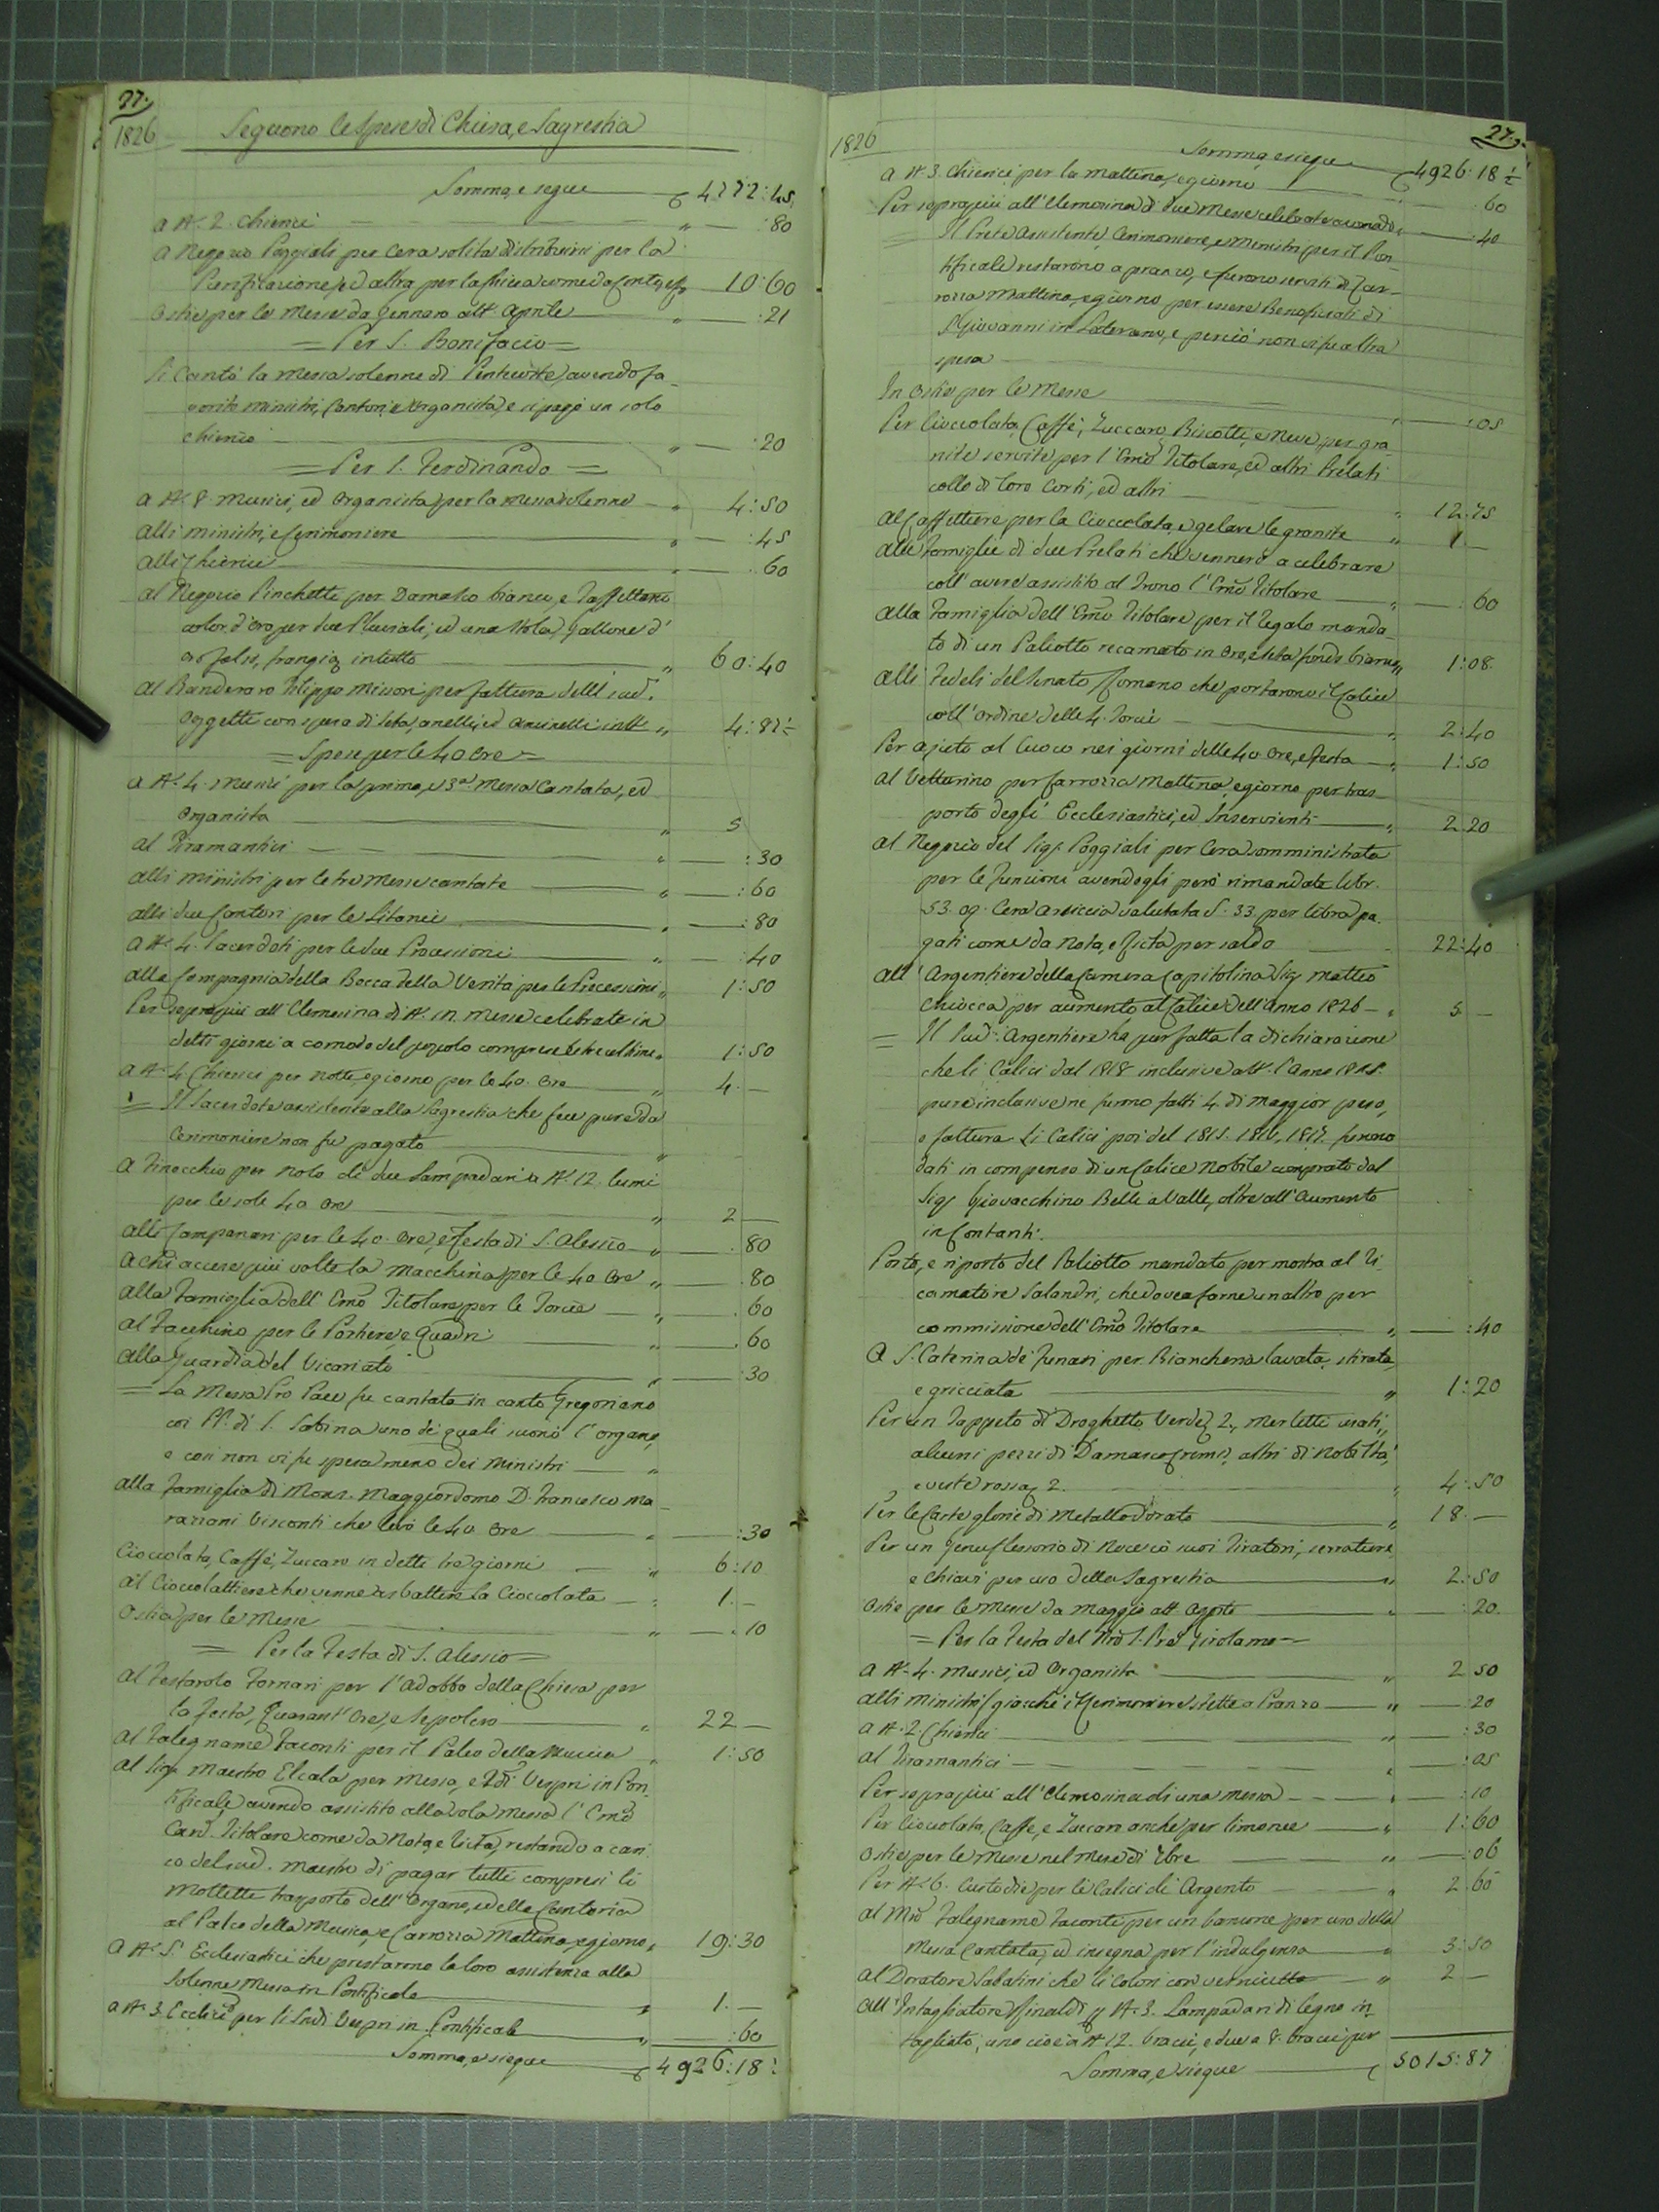 27.
1826 Seguono le Spese di Chiesa, e Sagrestia
Somma, e segue 4772:45
a N. 2. Chierici :80
a Negozio Poggiali per Cera solita distribuirsi per la
Purificazione, ed altra per la Chiesa come da Conto, e 10:60
Ostie per le Messe da Gennaro a tt. Aprile :21
= Per S. Bonifacio =
Si cantò la Messa solenne di Pentecoste, avendo fa-
vorito Ministri, Cantori, e Organista, e si pagò un solo
chierico :20
= Per S. Ferdinando =
a N. 8. Musici, ed Organista per la Messa solenne 4:50
alli Ministri, e Cerimoniere :45
alli Chierici :60
al Negozio Pinchetti per Damasco bianco, e Taffettano
color d'oro per due Pluviali, ed una Stola, gallone d'
oro falso, frangia, in tutto 60:40
al Banderaro Filippo Missori per fattura delli sud.
oggetti con spesa di seta, anelli, ed uncinelli in tt 4:82½
= Spese per le 40 Ore =
a N. 4. Musici per la prima, e 3a. Messa Cantata, ed
Organista 5
al Tiramantici :30
alli Ministri per le tre Messe cantate :60
alli due Cantori per le Litanie :80
a N. 4. Sacerdoti per le due Processioni :40
alla Compagnia della Bocca della Verità per le Processioni 1:50
Per soprapiù all'Elemosina di N. Messe celebrate in
detti giorni a comodo del popolo comprese le tre ultime 1:50
a N. 4 Chierici per notte, e giorno per le 40. Ore 4.—
= Il Sacerdote assistente alla Sagrestia che fece pure da
Cerimoniere non fu pagato
a Finocchio per nolo di due Lampadari a N. 12. lumi
per le sole 40 Ore 2 —
alli Campanari per le 40. Ore, e Festa di S. Alessio :80
a chi accese più volte la Macchina per le 40 Ore :80
alla Famiglia dell'Emo Titolare per le Torcie :60
al Facchino per le Portiere, e Quadri :60
alla Guardia del Vicariato :30
= La Messa Pro Pace fu cantata in canto Gregoriano
coi PP. di S. Sabina uno dei quali suonò l'organo,
e così non vi fu spesa meno dei Ministri
alla Famiglia di Mons. Maggiordomo D. Francesco Ma-
razzani Visconti che levò le 40 Ore :30
Cioccolata, Caffè, Zuccaro in detti tre giorni 6:10
al Cioccolattiere che venne a sbattere la Cioccolata 1.—
Ostia per le Messe :10
= Per la Festa di S. Alessio =
al Festarolo Fornari per l'adobbo della Chiesa per
la Festa, Quarant'Ore, e Sepolcro 22 —
al Falegname Faconti per il Palco della Musica 1:50
al Sigr. Maestro Elcala per Messa, e 2di Vespri in Pon-
tificale, avendo assistito alla sola Messa l'Emo
Card. Titolare come da Nota, e licta, restando a cari-
co del sud. Maestro di pagar tutti compresi li
Mottetti trasporto dell'Organo, e della Cantoria
al Palco della Musica, e Carrozza Mattina, e giorno 19:30
a N. 5. Ecclesiastici che prestarono la loro assistenza alla
Solenne Messa in Pontificale 1.—
a N. 3. Ecclici per li Sudi Vespri in Pontificale :60
Somma, e siegue 4926:18½
27.
1826
Somma, e siegue 4926:18½
a N. 3. Chierici per la mattina, e giorno :60
Per soprapiù all'Elemosina di due Messe celebrate :40
= Il Prete assistente, Cerimoniere, e Ministri per il Pon-
tificale restarono a pranzo, e furono serviti di Car-
rozza Mattina, e giorno per essere Beneficiati di
S. Giovanni in Laterano, e perciò non vi fu altra
spesa
In Ostie per le Messe :05
Per Cioccolata, Caffè, Zuccaro, Biscotti, e Neve, per gra-
nite servite per l'Emo Titolare, ed altri Prelati
colle di loro Corti, ed altri 12:75
al Caffettiere per la Cioccolata, e gelare le granite 1.—
alle Famiglie di due Prelati che vennero a celebrare
coll'avere assistito al Trono l'Emo Titolare :60
alla Famiglia dell'Emo Titolare per il Regalo manda-
to di un Paliotto recamato in Oro, e seta fondo bianco 1:08
alli Fedeli del Senato Romano che portarono il Calice
coll'ordine delle 4. Torcie 2:40
Per ajuto al Cuoco nei giorni delle 40 Ore, e Festa 1:50
al Vetturino per Carrozza Mattina, e giorno per tras-
porto degli Ecclesiastici, ed Inservienti 2.20
al Negozio del Sigr. Poggiali per Cera somministrata
per le funzioni avendogli però rimandate libr.
53. og. Cera arsiccia valutata S. 33 per libra pa-
gati come da Nota, e licta per saldo 22:40
all'Argentiere della Camera Capitolina Sigr Matteo
Chiocca per aumento al Calice dell'Anno 1826 5 —
= Il Sud. Argentiere ha pur fatta la dichiarazione
che li Calici dal 1818 inclusive a tt. l'anno 1825.
pure inclusive ne furno fatti 4. di maggior peso,
e fattura. Li Calici poi del 1815. 1816, 1817. furono
dati in compenso di un Calice Nobile comprato dal
Sigr Giovacchino Belli a Valle, oltre all'Aumento
in Contanti.
Porto, e riporto del Paliotto mandato per mostra al Ri-
camatore Salandri, che dovea farne un altro per
commissione dell'Emo Titolare :40
A S. Caterina de' Funari per Biancheria lavata, stirata,
e gricciata 1:20
Per un Tappeto di Droghetto Verde, 2. merletti usati,
alcuni pezzi di Damasco cremisi, altri di Nobiltà,
e veste rossa 2. 4:50
Per le Carteglorie di Metallo dorato 18.—
Per un Genuflessorio di Noce co' suoi Tiratori, serrature
e Chiavi per uso della Sagrestia 2:50
Ostie per le Messe da Maggio a tt. Agosto :20.
= Per la Festa del Nro S. Pre Girolamo =
a N. 4. Musici, ed Organista 2 50
alli Ministri giacchè il Cerimoniere stette a Pranzo :20
a N. 2. Chierici :30
al Tiramantici :05
Per soprapiù all'Elemosina di una Messa :10
Per Cioccolata, Caffè, e Zuccaro anche per limonee 1:60
Ostie per le Messe nel Mese di 7bre :06
Per N. 6. Custodie per li Calici di Argento 2.60
al Mro Falegname Faconti per un bancone per uso della
Messa Cantata, ed insegna per l'indulgenza 3:50
al Doratore Sabatini che li colorì con vernice 2 —
all'Intagliatore Rinaldi per N. 3. Lampadari di legno in-
tagliato, uno cioè a N. 12. bracci, e due a 8. bracci per
Somma, e siegue 5015:87